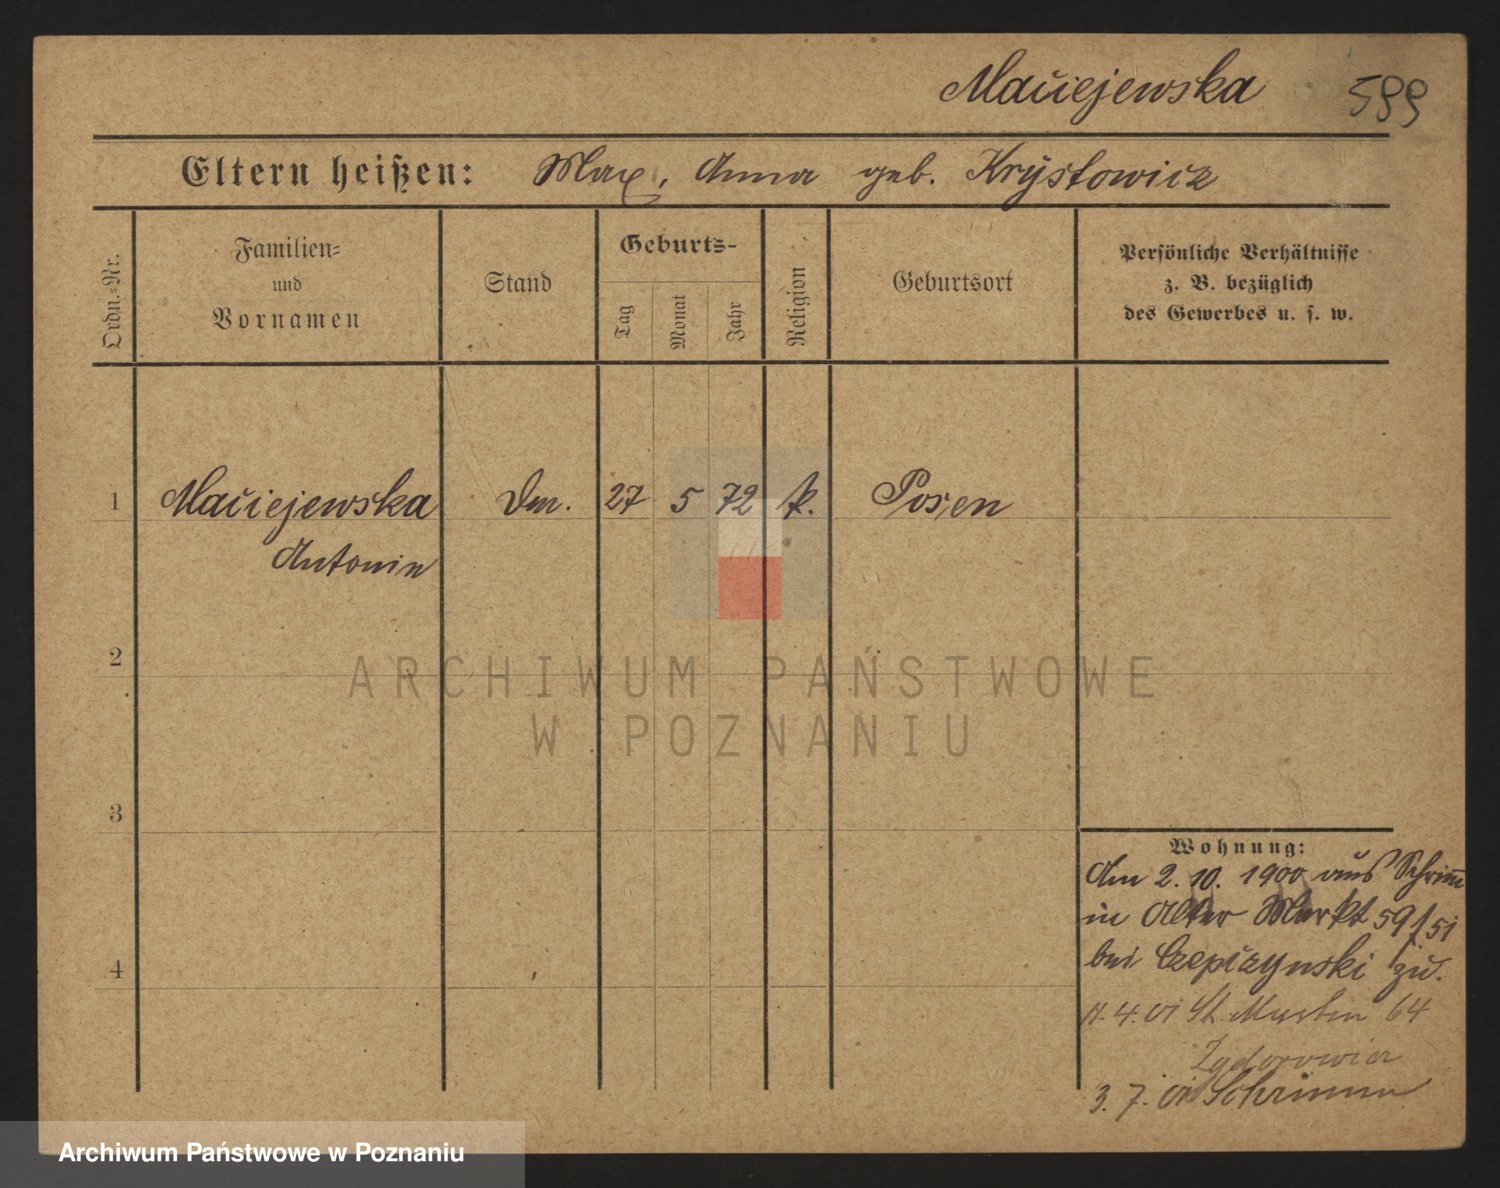 Maciejewska 599
Eltern heißen: Max, Anna geb. Krystowicz
Ordn.-Nr.
Familien-
und
Vornamen
Stand
Geburts-
Tag
Monat
Jahr
Religion
Geburtsort
Persönliche Verhältnisse
z. B. bezüglich
des Gewerbes u. s. w.
1 Maciejewska 27 5 72 k. Posen
Antonie
2
ARCHIWUM PAŃSTWOWE
W POZNANIU
3
4
Wohnung:
Am 2. 10. 1900 aus Schrimm
in Alter Markt 59/51
bei Czepczynski zu.
4. 01 St. Martin 64
3. 7. 01 Schrimm
Archiwum Państwowe w Poznaniu